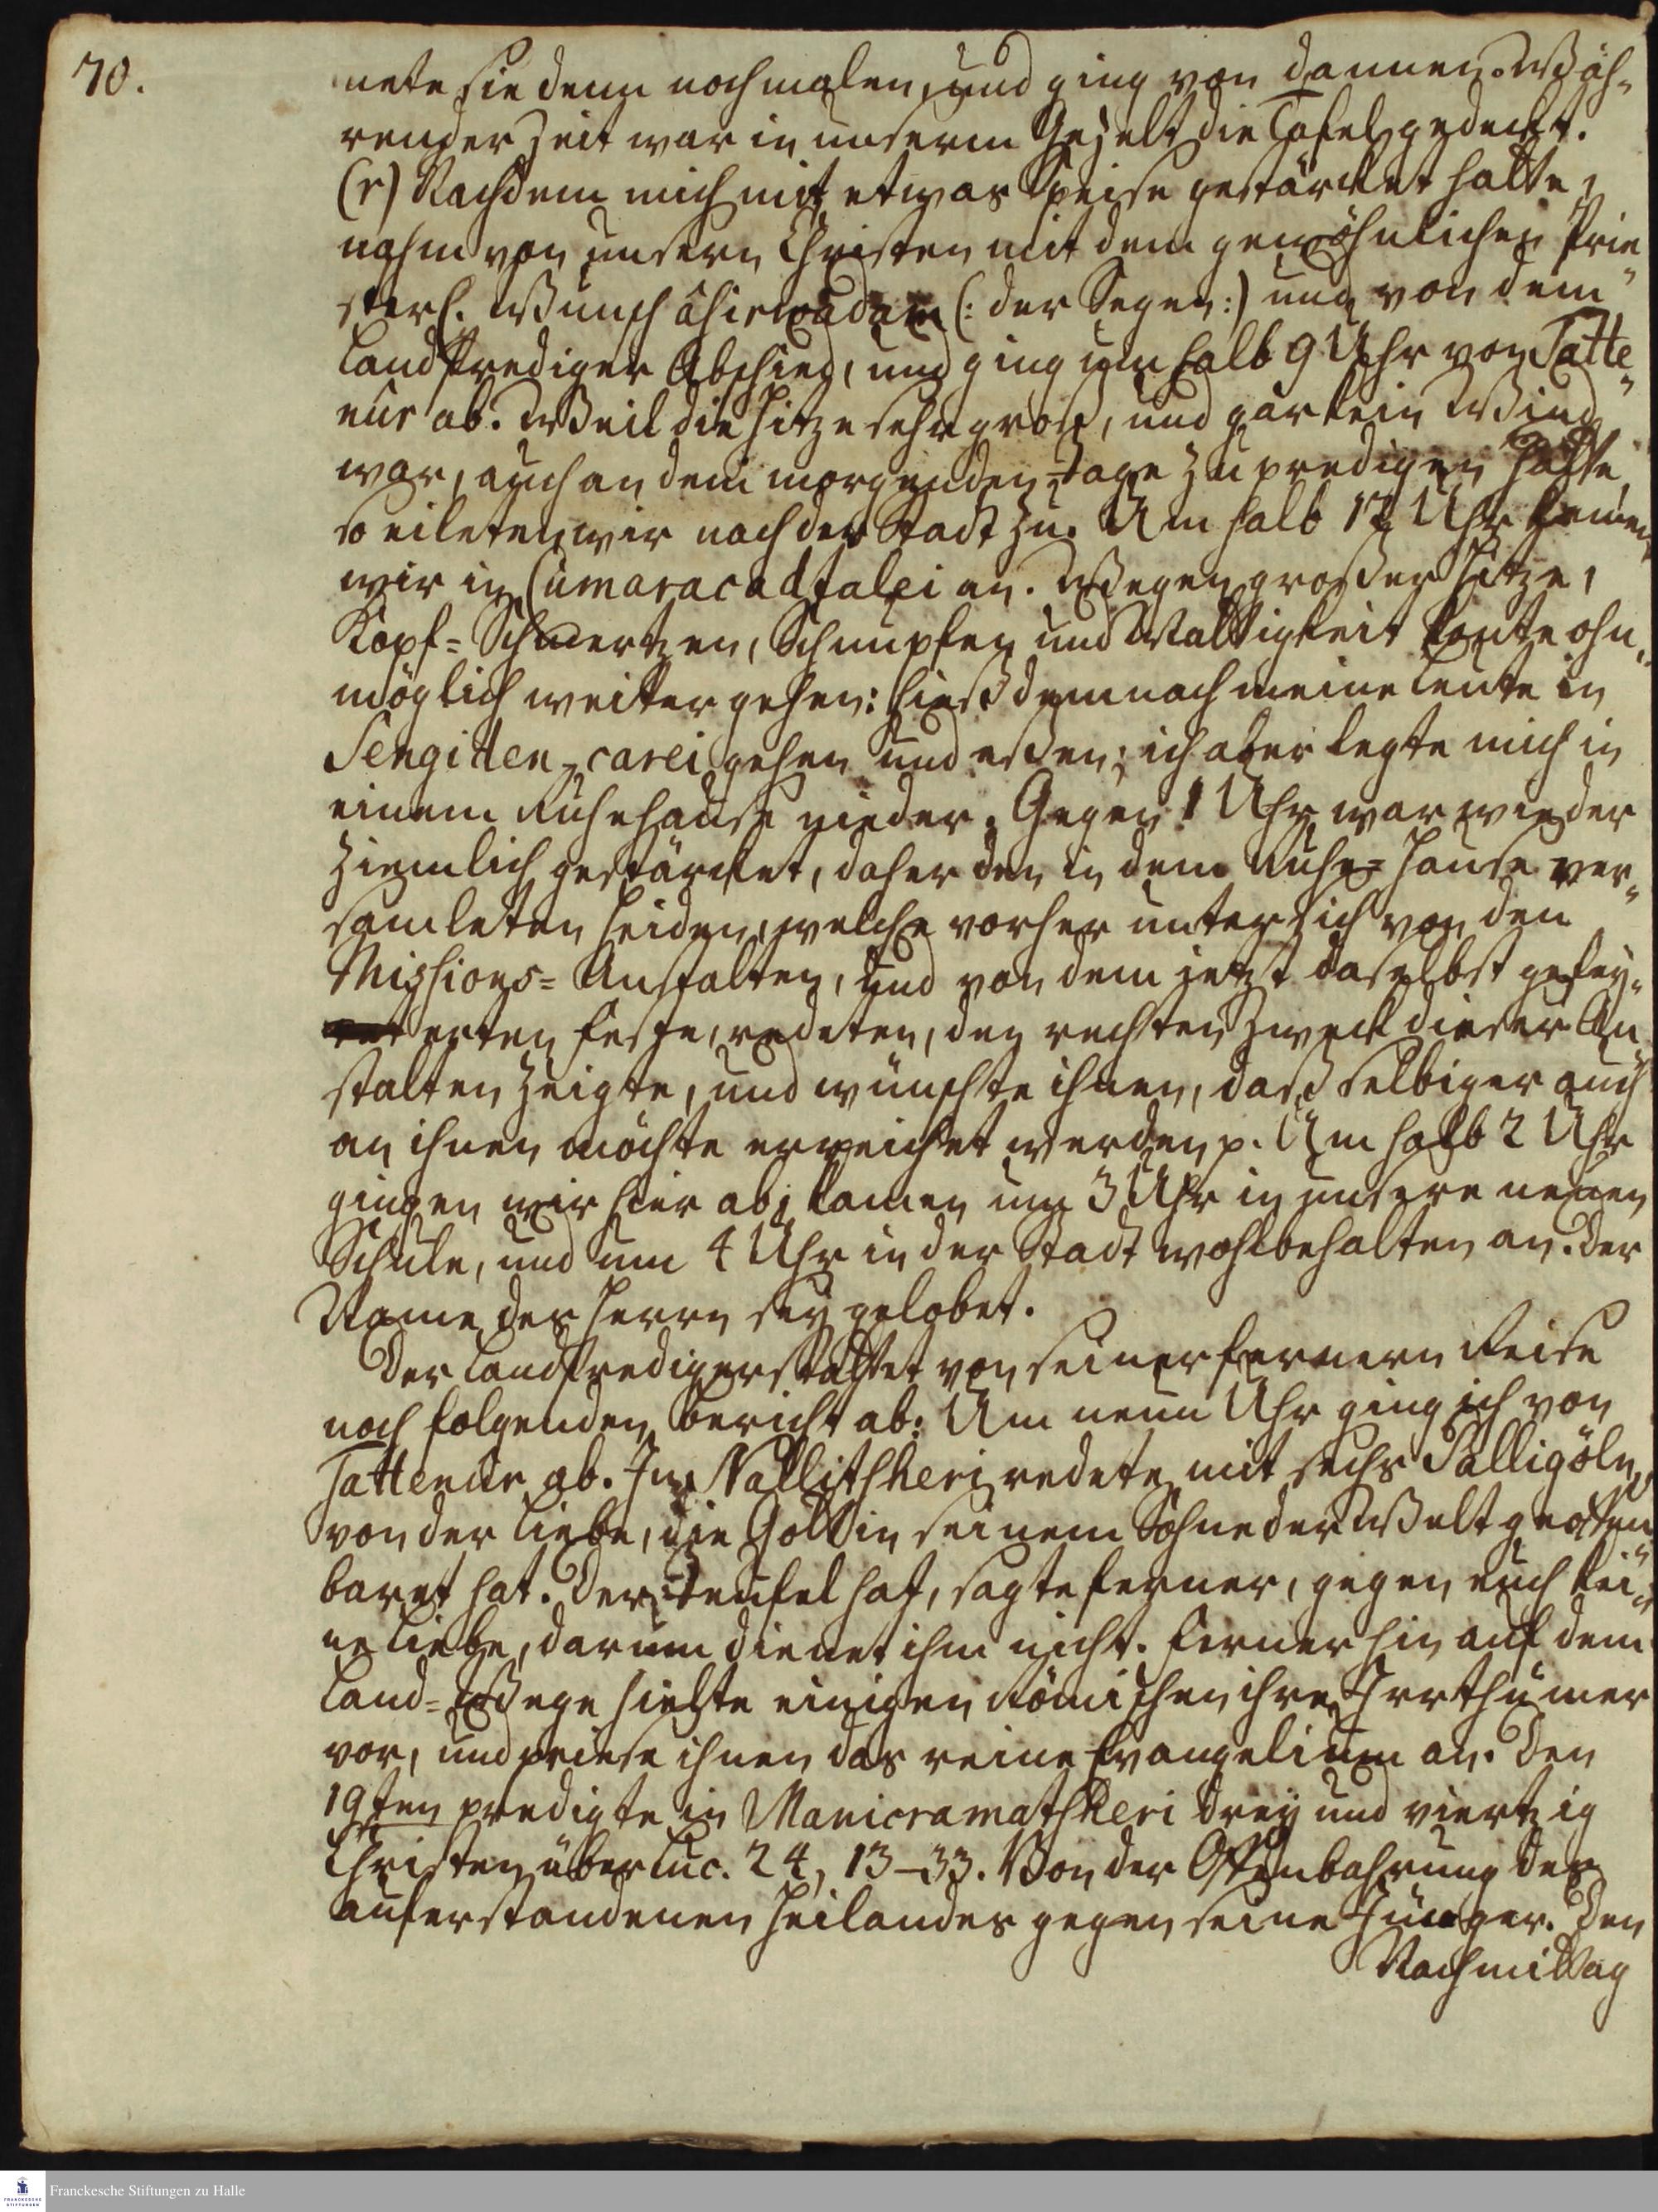 70.
nete sie denn nochmalen, und ging von dannen. Wäh-
render Zeit war in unserm Gezelt die Tafel gedeckt.
(r) Nachdem mich mit etwas Speise gestärcket hatte,
nahm von unsern Christen mit dem gewöhnlichen Prie-
sterl. Wunsch âhirwâdam (: der Segen :) und von dem
Landprediger Abschied, und ging um halb 9 Uhr von Tatte-
nûr ab. Weil die Hitze sehr groß, und gar kein Wind
war, auch an dem morgenden Tage zu predigen hatte,
so eileten wir nach der Stadt zu. Um halb 12 Uhr kamen
wir in Cumaracadtalei an. Wegen großer Hitze,
Kopf-Schmertzen, Schnupfen und Mattigkeit konte ohn-
möglich weiter gehen: hieß demnach meine Leute in
Sengitten-carei gehen und essen; ich aber legte mich in
einem Ruhehause nieder. Gegen 1 Uhr war wieder
ziemlich gestärcket, daher den in dem Ruhe-Hause ver-
samleten Heiden, welche vorher unter sich von den
Missions-Anstalten, und von dem jetzt daselbst gefey-
erten Feste, redeten, den rechten Zweck dieser An-
stalten zeigte, und wünschte ihnen, daß selbiger auch
an ihnen möchte erreichet werden p. Um halb 2 Uhr
gingen wir hier ab, kamen um 3 Uhr in unsere neuen
Schule, und um 4 Uhr in der Stadt wohlbehalten an. Der
Name des Herrn sey gelobet.
Der Landprediger stattet von seiner fernern Reise
noch folgenden Bericht ab: Um neun Uhr ging ich von
Tattenûr ab. In Nallitsheri redete mit sechs Palligöln,
von der Liebe, die Gott in seinem Sohne der Welt geoffen-
baret hat. Der Teufel hat, sagte ferner, gegen euch kei-
ne Liebe, darum dienet ihm nicht. Ferner hin auf dem
Land-Wege hielte einigen Römischen ihre Irrthümer
vor, und priese ihnen das reine Evangelium an. Den
19ten predigte in Manicramatsheri drey und viertzig
Christen über Luc. 24, 13–33. Von der Offenbahrung des
auferstandenen Heilandes gegen seine Jünger. Den
Nachmittag
Franckesche Stiftungen zu Halle
FRANCKESCHE
STIFTUNGEN